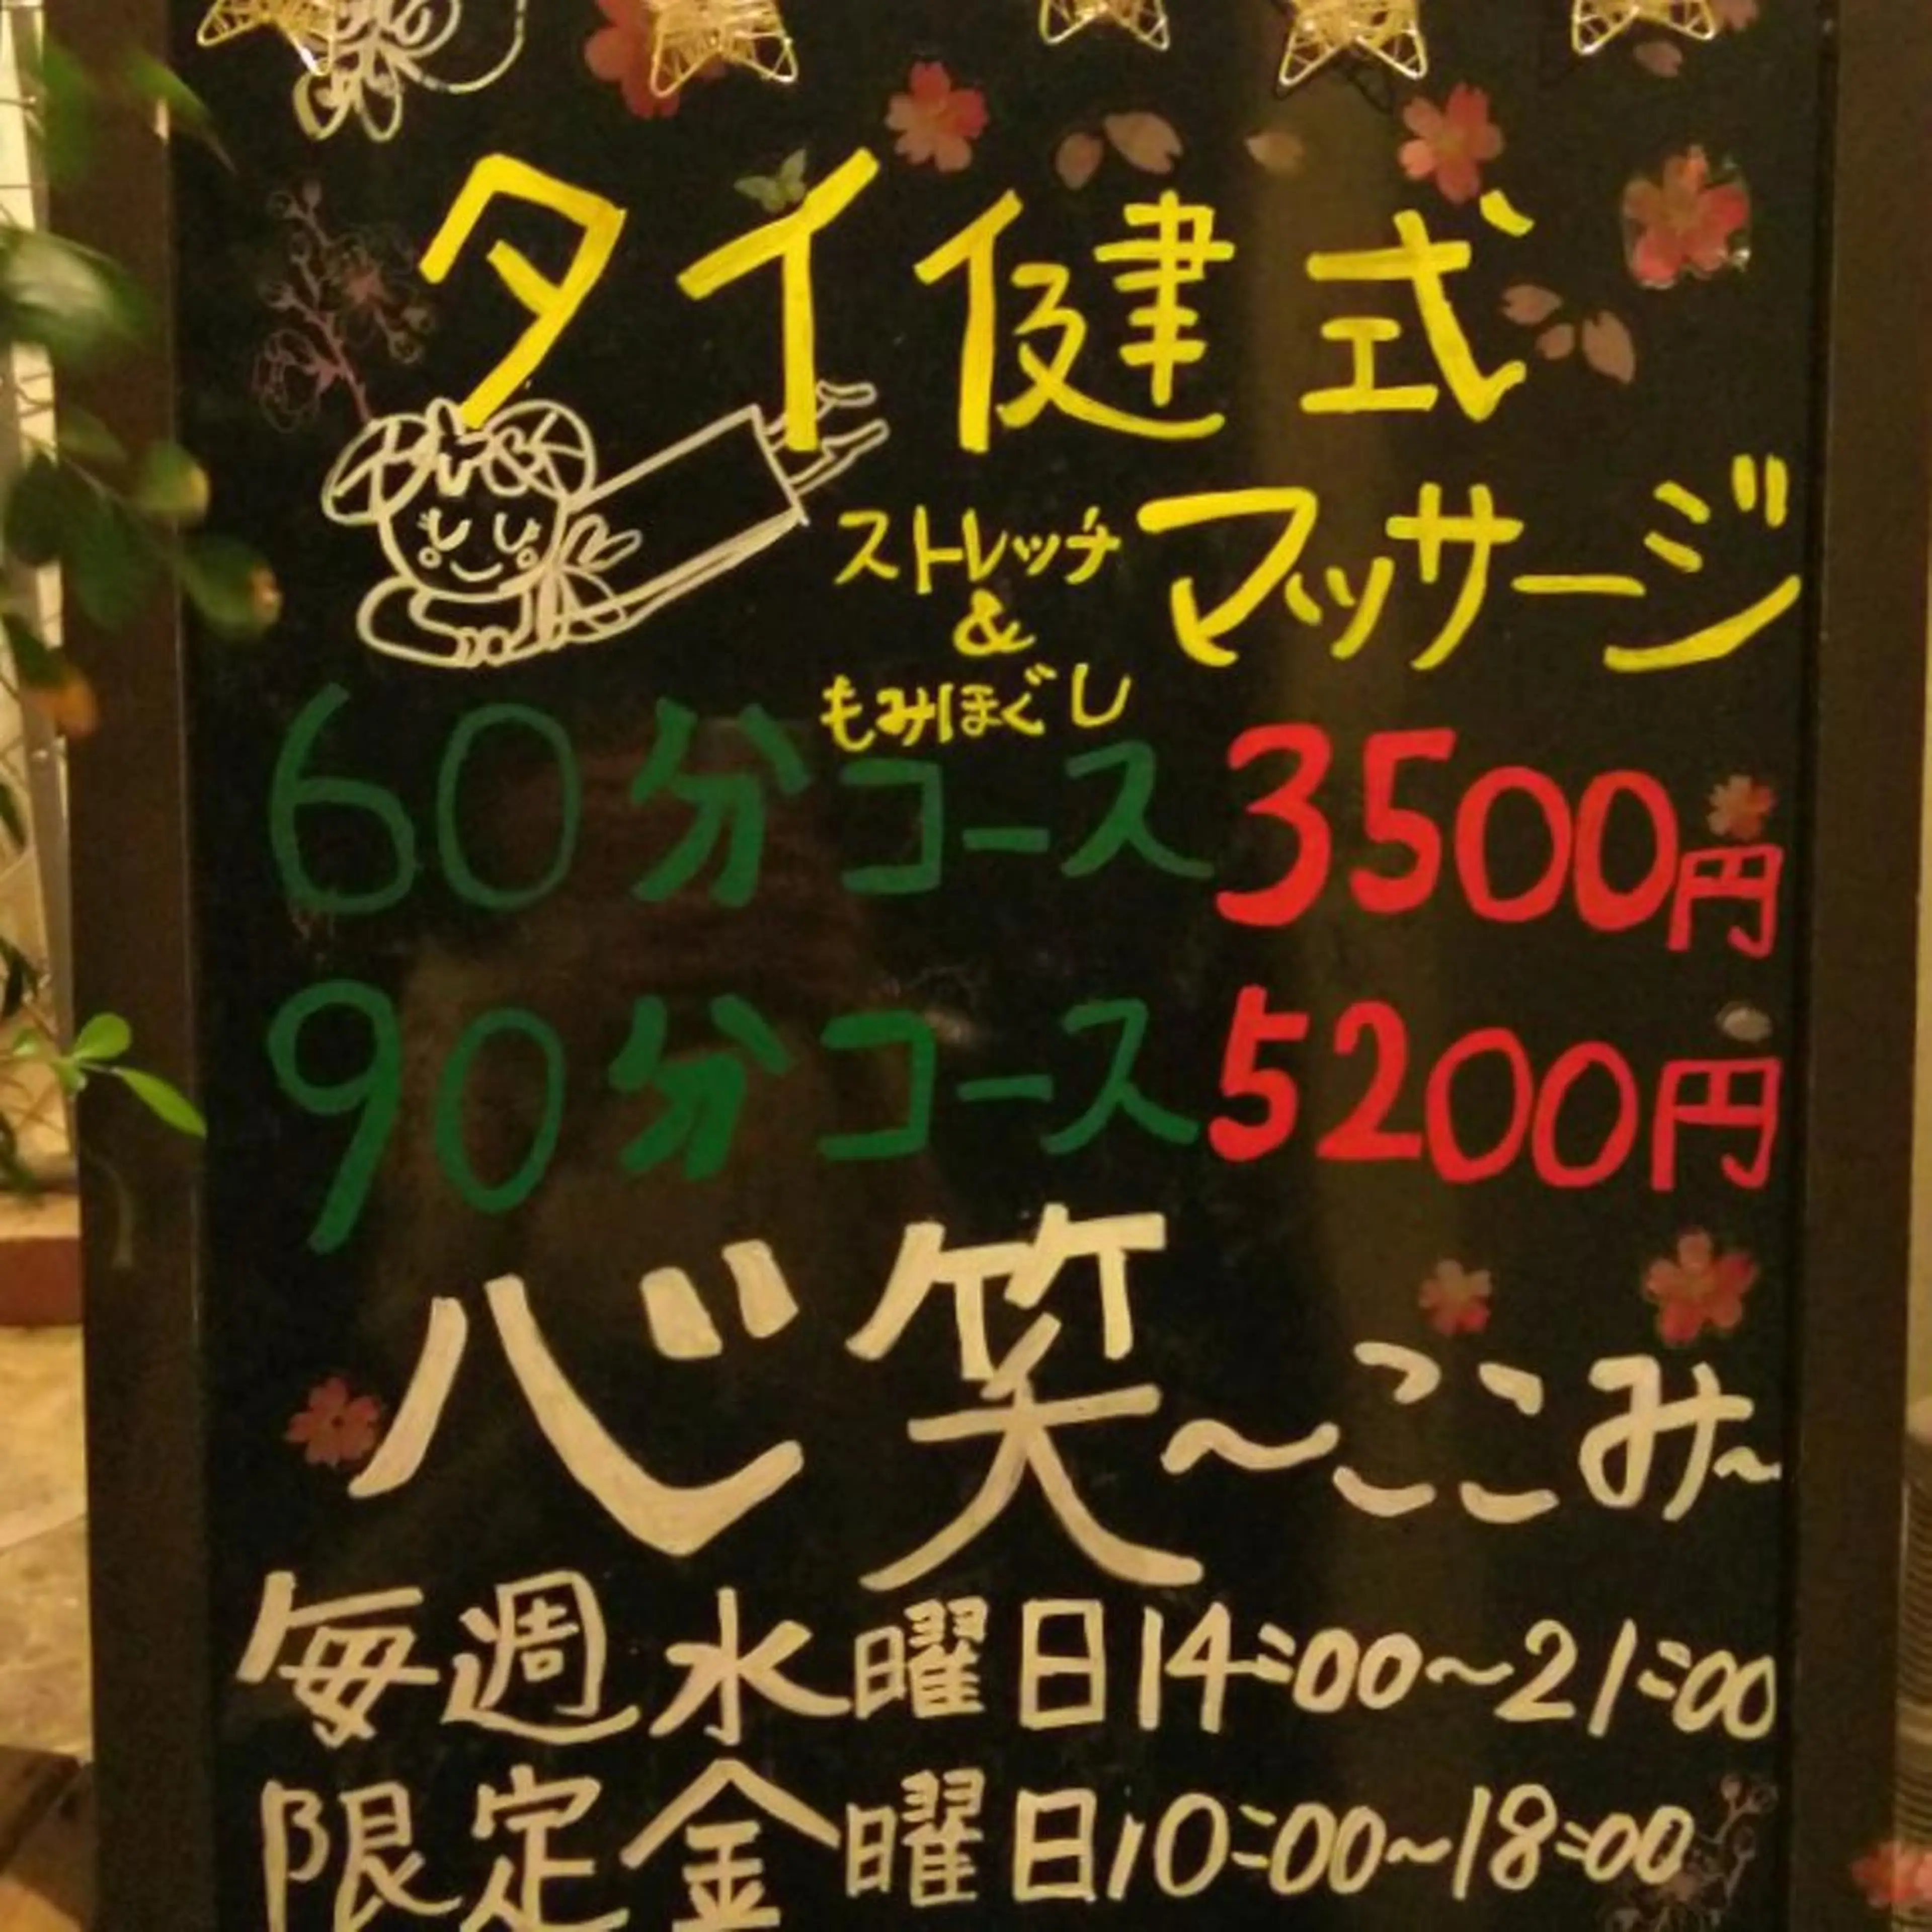 タイ健式
ストレッチ
&
もみほぐし
マッサージ
60分コース 3500円
90分コース 5200円
心笑~ここみ~
毎週水曜日14:00~21:00
限定金曜日10:00~18:00